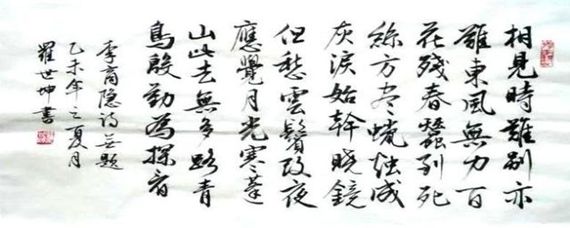 相見時難別亦
難東風無力百
花殘春蠶到死
絲方尽蠟燭成
灰淚始幹曉鏡
但愁雲鬢改夜
應覺月光寒蓬
山此去無多路青
鳥殷勤為探看
李商隐詩无題
乙未年之夏月
羅世坤書